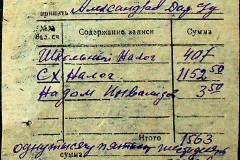 принять Александров
№№ Содержание записи Сумма
Школьный Налог 407
СХ Налог 1152 50
На дом Инвалидов 3 50
Итого 1563
одну тысячу пятьсот шестьдесят
сумма